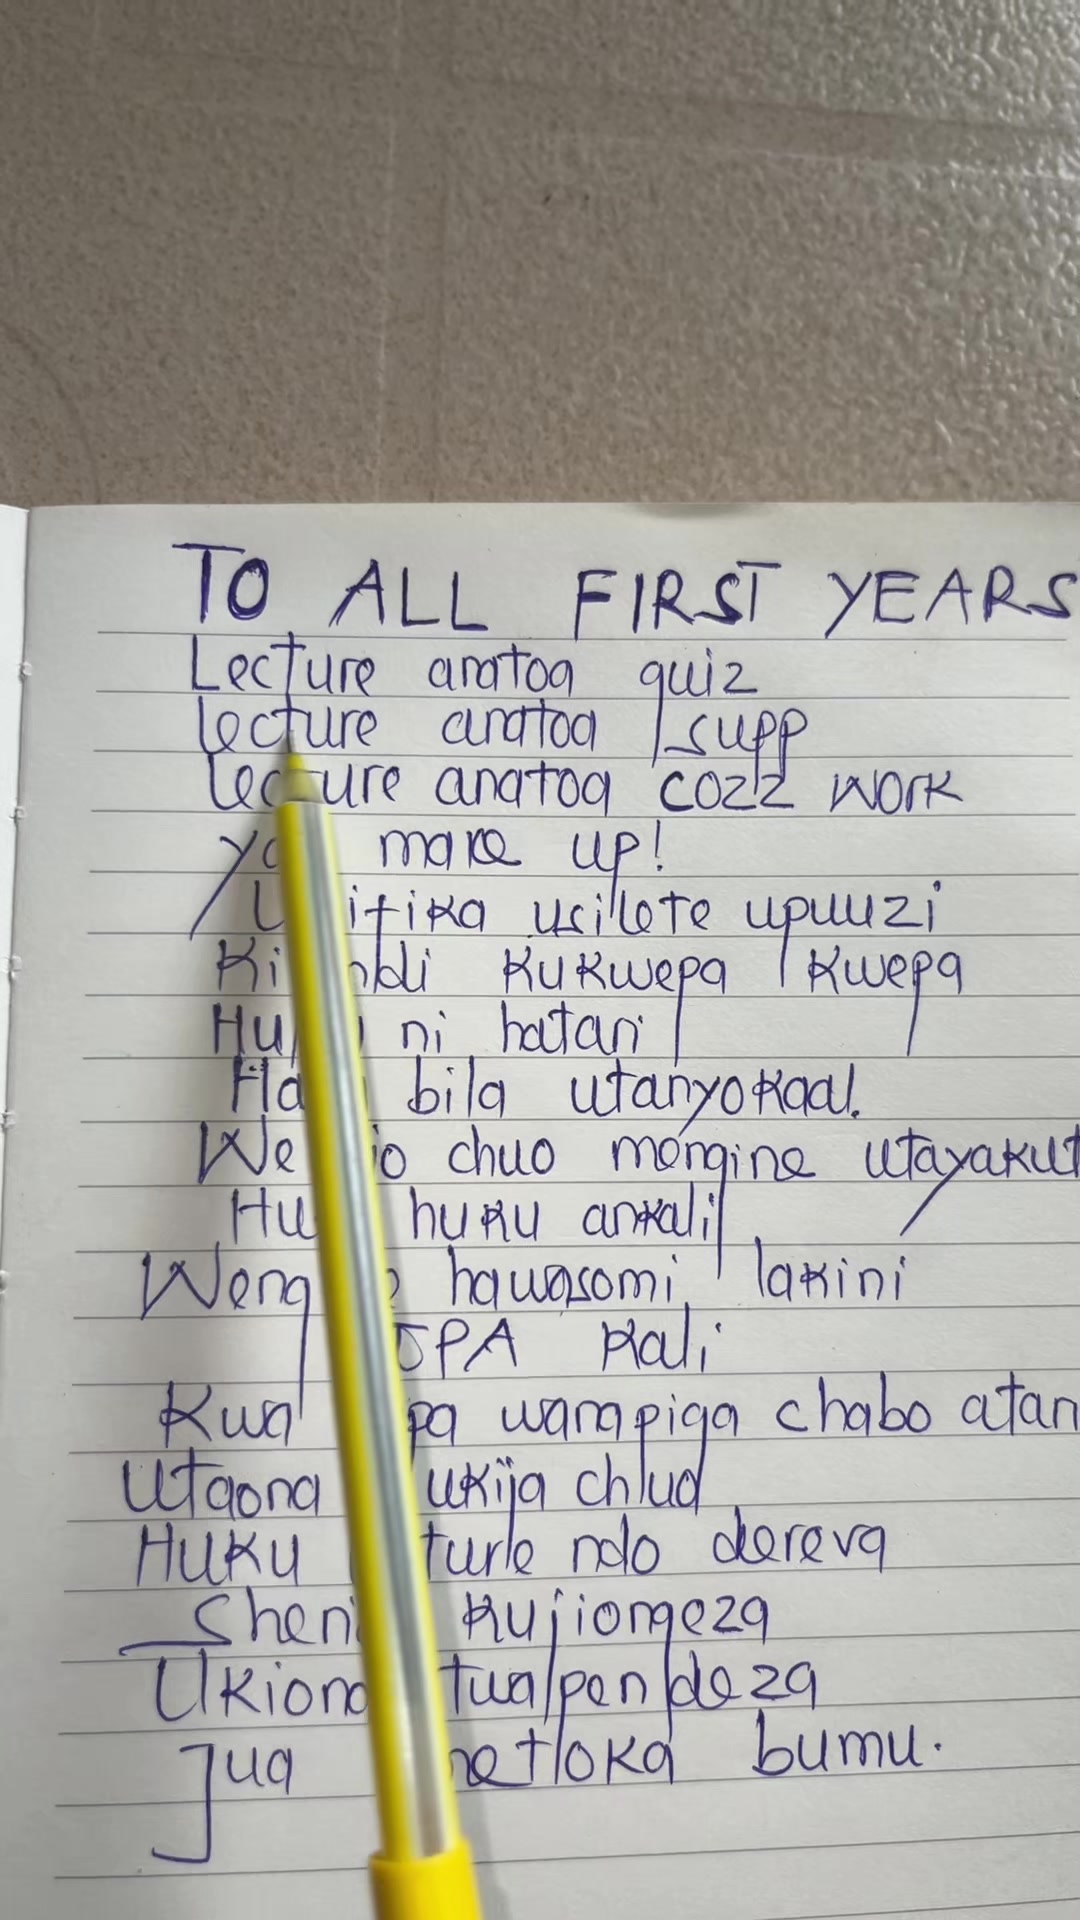 TO ALL FIRST YEARS
Lecture anatoa quiz
Lecture anatoa supp
Lecture anatoa cozz work
make up!
usilete upuuzi
kukwepa kwepa
ni hatari
bila utanyokaa!
chuo mengine utayakut
huku ankali
hawasomi lakini
GPA kali
wanapiga chabo atan
Utaona ukija chuo
Huku ndo dereva
kujiongeza
tuapendeza
Jua bumu.